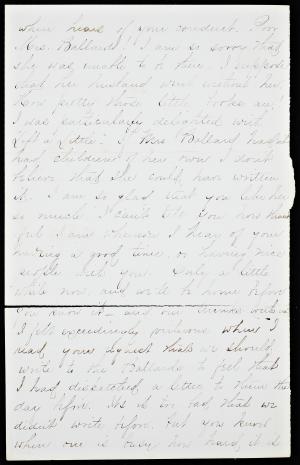 when hears of your conduct. Poor
Mrs. Ballard! I am so sorry that
she was unable to be there. I suppose
that her husband went without her.
How pretty those little books are!
I was particularly delighted with
"Left a Little". If Mrs Ballard hadn't
had children of her own I don't
believe that she could have written
it. I am so glad that you like her
so much. I can't tell you how thank-
ful I am whenever I hear of your
making a good time, or having nice
people with you. Only a little
while now, and we to home before
you know it – and our
I felt exceedingly when I
read your that we should
write to the Ballards to feel that
I had dispatched a letter to them the
day before. It is too bad that we
didn't write before, but you know
when one is busy how hard it is